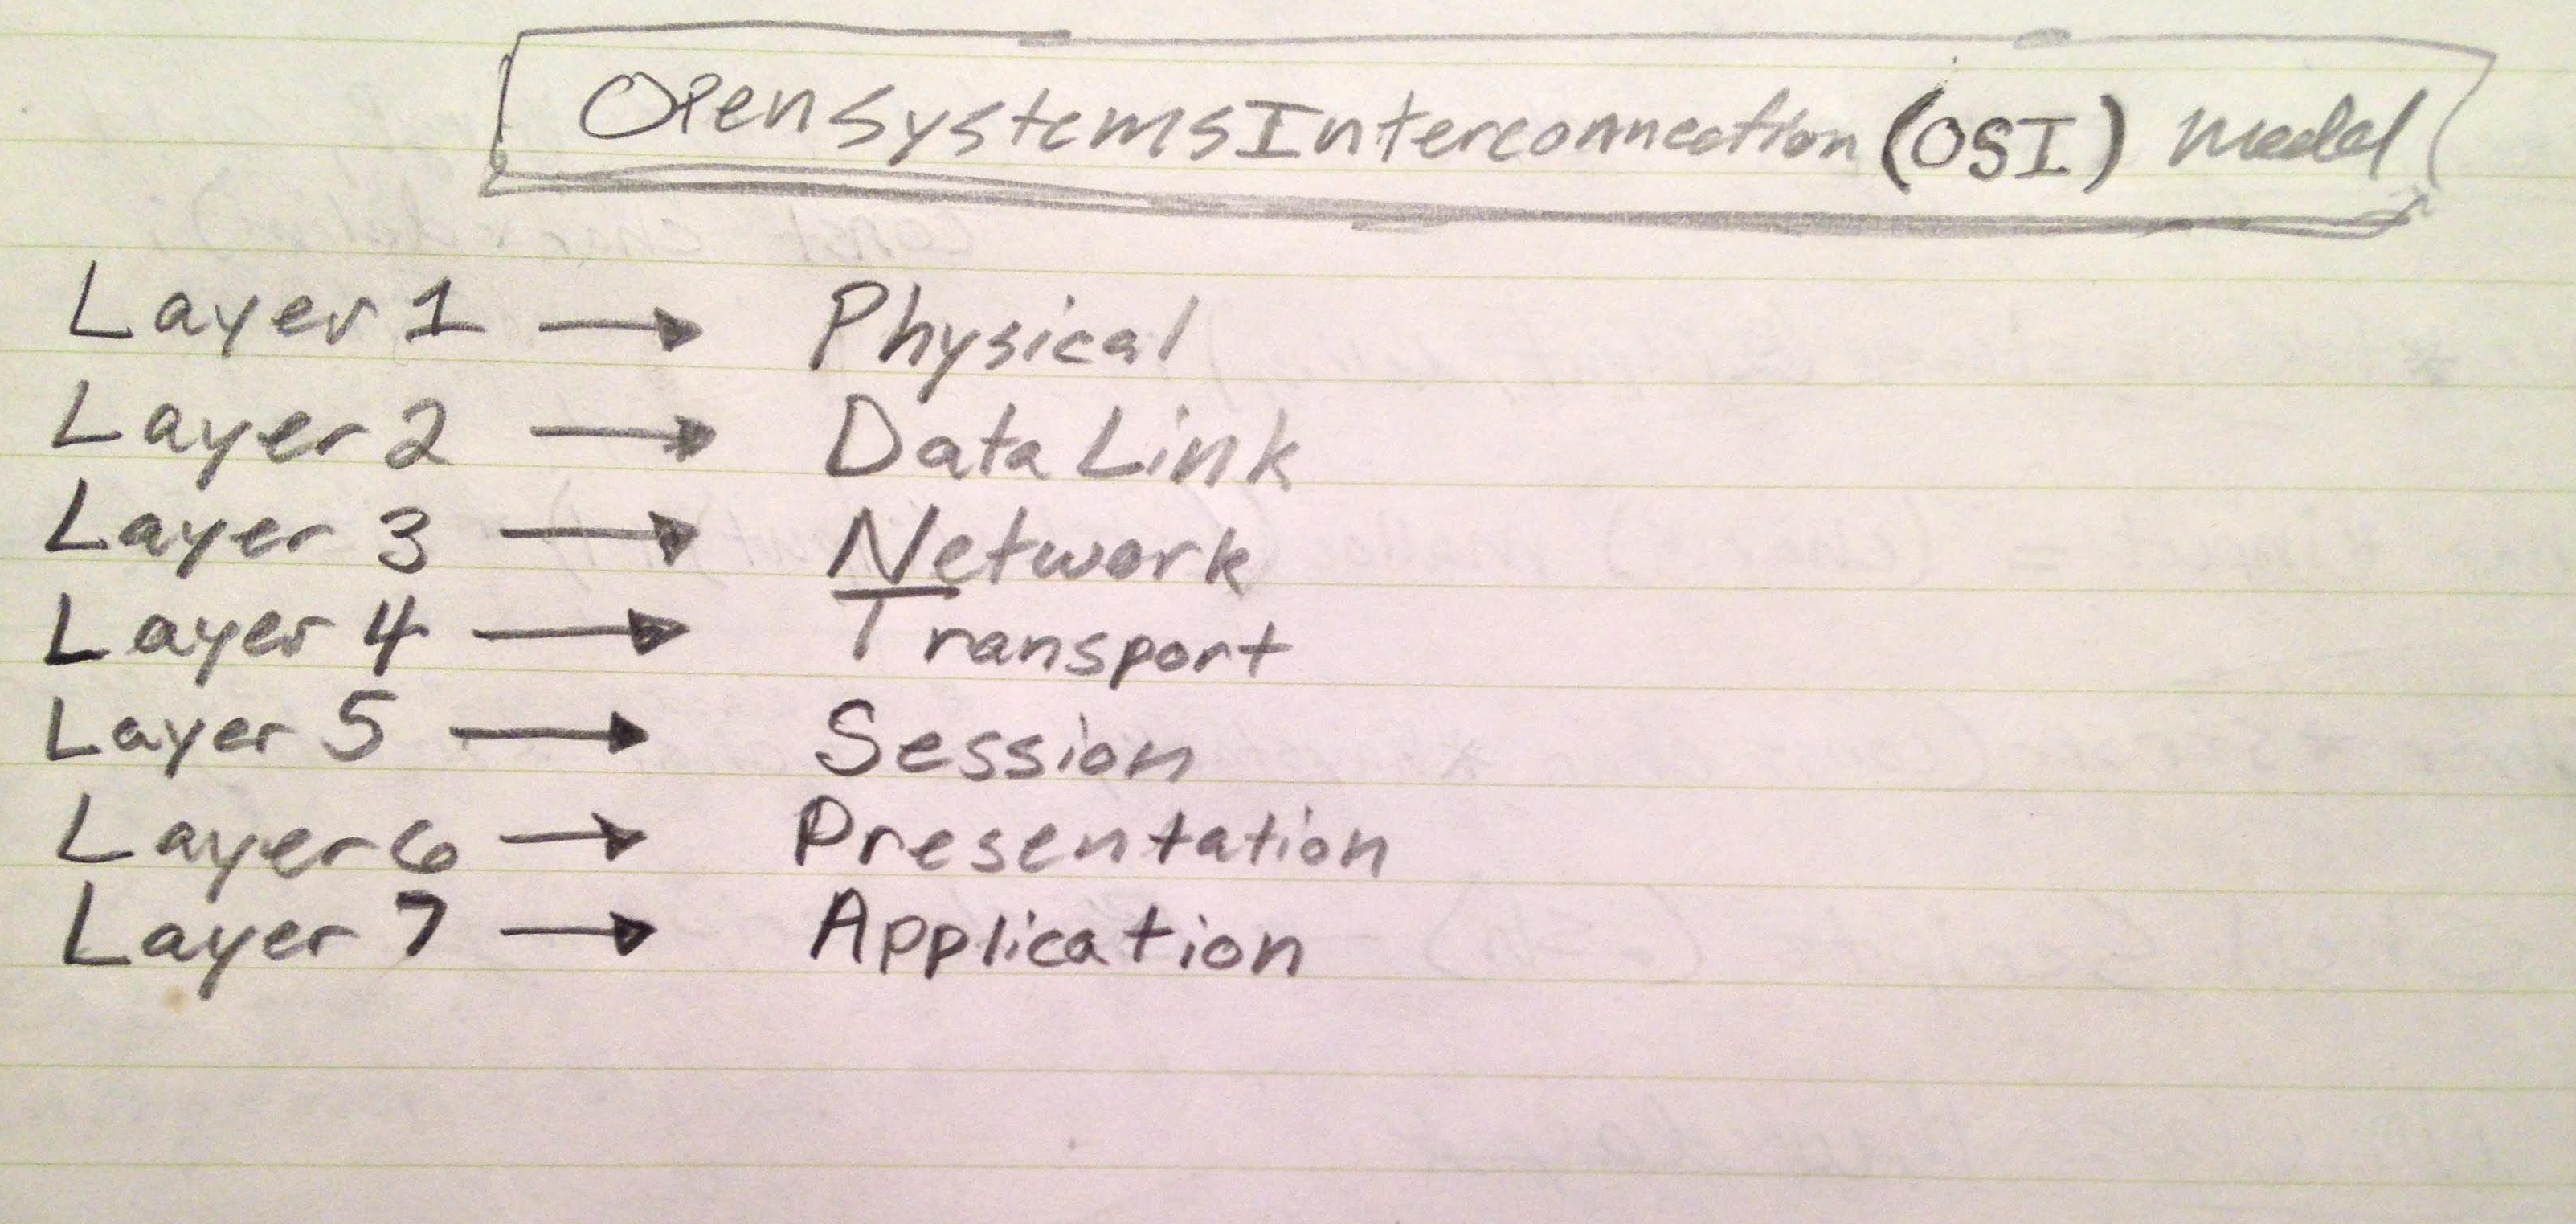 Open Systems Interconnection (OSI) model
Layer 1 → Physical
Layer 2 → Data Link
Layer 3 → Network
Layer 4 → Transport
Layer 5 → Session
Layer 6 → Presentation
Layer 7 → Application